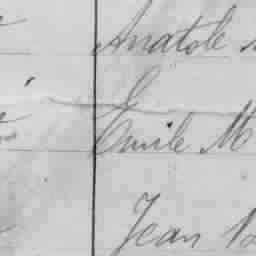 Anatole
Emile M
Jean